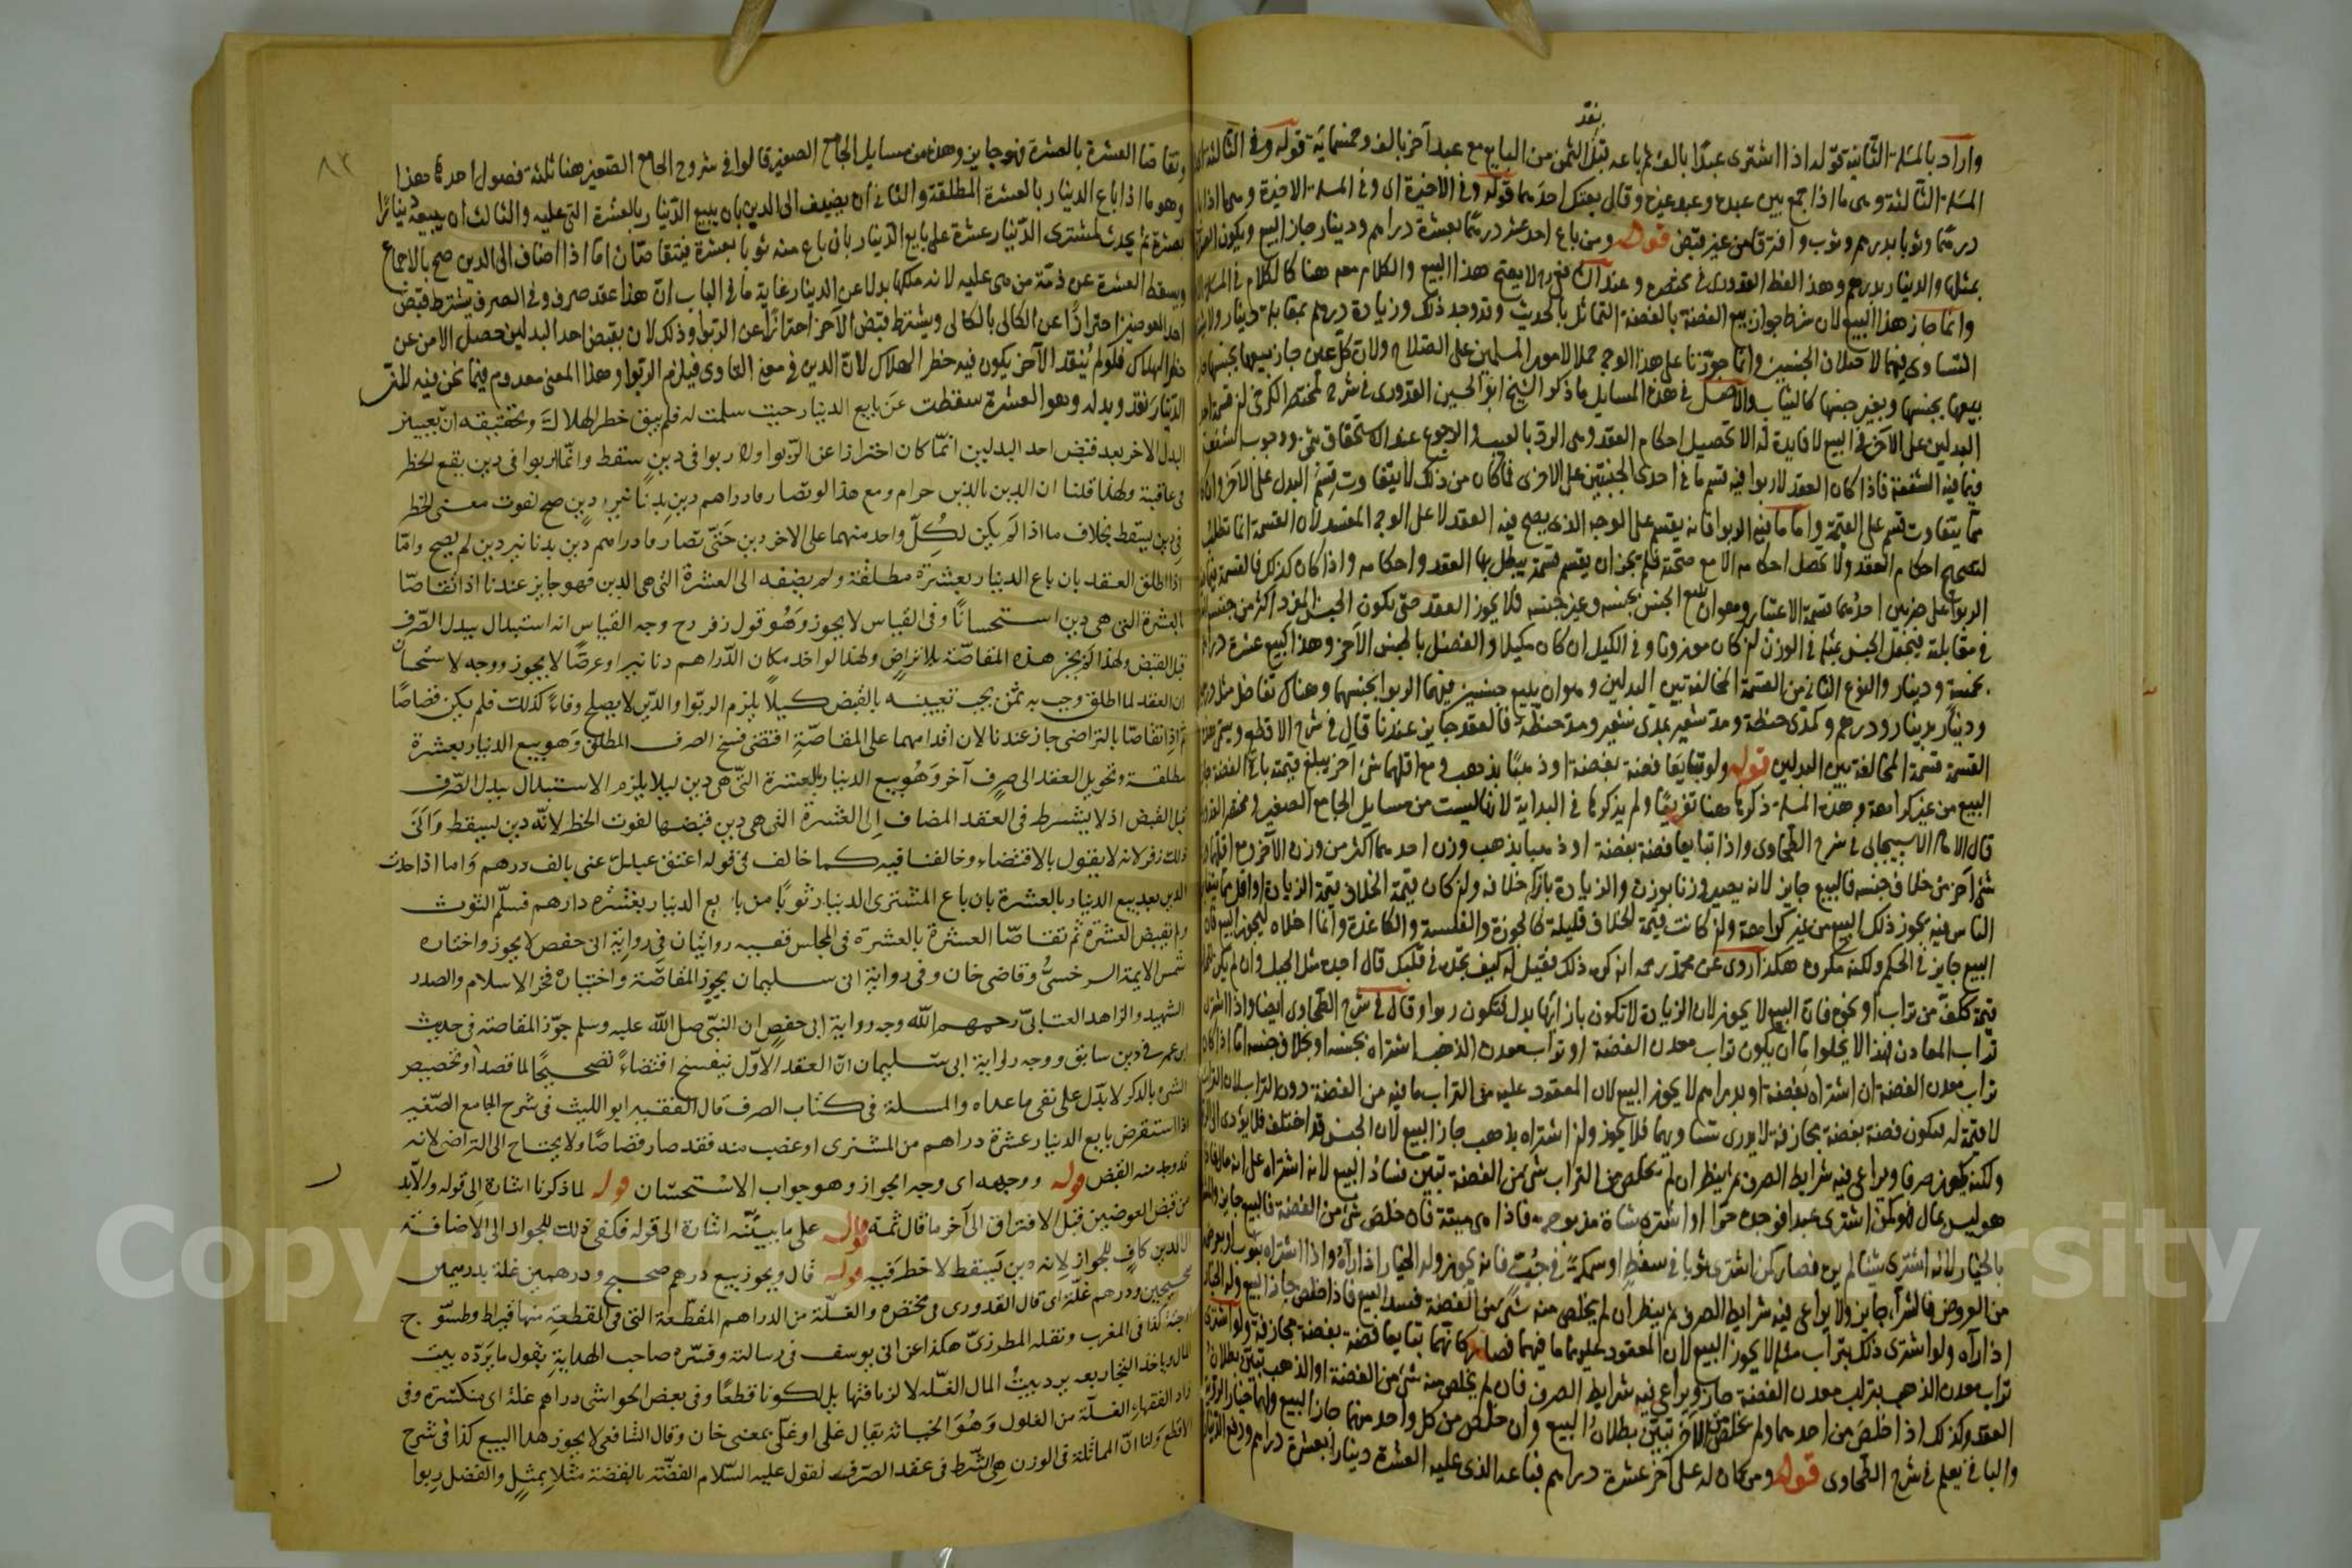 بعد
واراد بالمسئلة الثانية قوله اذا اشترى عبدًا بالف ثم باعه قبل الثمن من البايع مع عبد آخر بالف وخمسمائة قوله وفي الثالثة
المسئلة الثالثة وهي ما اذا جمع بين عبده وعبد غيره وقال بعتك احدهما قوله وفي الاخيرة اى وفي المسئلة الاخيرة وهي ما اذا
درهمًا وثوبا بدرهم وثوب وافترقا من غير قبض قوله ومن باع احد عشر درهمًا بعشرة دراهم ودينار جاز البيع ويكون العشرة
بمثلها والدينار بدرهم وهذا لفظ القدوري في مختصره وعند زفر لا يصح هذا البيع والكلام معه هنا كالكلام في المسئلة
وانما جاز هذا البيع لان شرط جواز بيع الفضة بالفضة التماثل بالحديث وقد وجد ذلك وزيادة درهم بمقابلة دينار ولا
التساوى فيهما لاختلاف الجنسين وانما جوّزنا على هذا الوجه حملا لامور المسلمين على الصلاح ولان كل عين جاز بيعها بجنسها
بيعها بجنسها وبغير جنسها كالثياب والاصل في هذه المسايل ما ذكر الشيخ ابو الحسين القدوري في شرح مختصر الكرخي ان قسمة احد
البدلين على الآخر في البيع لا فايدة له الا تحصيل احكام العقد وهي الرد بالعيب والرجوع عند الاستحقاق بشئ ووجوب الشفعة
فيما فيه الشفعة فاذا كان العقد لا ربوا فيه قسم ما في احدى الجنبتين على الاخرى فما كان من ذلك لا يتفاوت قسم البدل على الآخر وان كان
مما يتفاوت قسم على القيمة واما ما فيه الربوا فانه يقسم على الوجه الذى يصح فيه العقد لا على الوجه المفسد لان القسمة انما تطلب
لتصحيح احكام العقد ولا تحصل احكامه الا مع صحته فلم يجز ان يقسم قسمة يبطل بها العقد واحكامه واذا كان كذلك فالقسمة
الربوا على ضربين احدهما قسمة الاعتبار وهو ان يبيع الجنس بجنسه وغير جنسه فلا يجوز العقد حتى يكون الجنس المفرد اكثر من جنسه
في مقابلته فيجعل الجنس بمثله في الوزن ان كان موزونا وفي الكيل ان كان مكيلا والفضل بالجنس الآخر وهذا كبيع عشرة دراهم
بخمسة ودينار والنوع الثانى من القسمة المخالفة بين البدلين وهو ان يبيع جنسين فيهما الربوا بجنسهما وهناك تفاضل مثل درهم
ودينار بدينار ودرهم وكمدى حنطة ومد شعير بمدى شعير ومد حنطة فالعقد جايز عندنا قال في شرح الاقطع ويسمى هذه
القسمة قسمة المخالفة بين البدلين قوله ولو تبايعا فضة بفضة او ذهبًا بذهب ومع اقلهما شئ آخر يبلغ قيمته باقي الفضة جاز
البيع من غير كراهة وهذه المسئلة ذكرها هنا تفريعًا ولم يذكرها في البداية لانها ليست من مسايل الجامع الصغير ومختصر القدوري
قال الامام الاسبيجابى في شرح الطحاوى واذا تبايعا فضة بفضة او ذهبا بذهب وزن احدهما اكثر من وزن الآخر ومع اقلهما
شئ آخر من خلاف جنسه فالبيع جايز لانه يصير وزنا بوزن والزيادة بازاء خلافه وان كان قيمة الخلاف قيمة الزيادة او اقل مما يتغابن
الناس فيه يجوز ذلك البيع من غير كراهة وان كانت قيمة الخلاف قليلة كالجوزة والفلسة والكاغدة وانما ادخلاه ليجوز البيع فان
البيع جايز في الحكم ولكنه مكروه هكذا روى عن محمد رحمه الله انه كره ذلك فقيل له كيف تجده في قلبك قال اجده مثل الجبل وان لم يكن
قيمة ككف من تراب او نحوه فان البيع لا يجوز لان الزيادة لا تكون بازائها بدل فتكون ربوا وقال في شرح الطحاوى ايضا واذا اشترى
تراب المعادن فهذا لا يخلوا اما ان يكون تراب معدن الفضة او تراب معدن الذهب اشتراه بجنسه او بخلاف جنسه اما اذا كان
تراب معدن الفضة ان اشتراه بفضة او بدراهم لا يجوز البيع لان المعقود عليه من التراب ما فيه من الفضة دون التراب لان التراب
لا قيمة له فيكون فضة بفضة مجازفة لا يدرى تساويهما فلا يجوز وان اشتراه بذهب جاز البيع لان الجنس قد اختلف فلا يؤدى الى الربوا
ولكنه يكون صرفا ويراعى فيه شرايط الصرف ثم ينظر ان لم يخلص من التراب شئ من الفضة تبين فساد البيع لانه اشتراه على انه مال فاذا
هو ليس بمال فهو كمن اشترى عبدا فوجده حرا او اشترى شاة مذبوحة فاذا هى ميتة فان خلص شئ من الفضة فالبيع جايز والمشترى
بالخيار لانه اشترى شيئا لم يره فصار كمن اشترى ثوبا في سفط او سمكة في جب فانه يجوز وله الخيار اذا رآه واذا اشتراه بثوب او بعرض
من العروض فالشراء جايز ولا يراعى فيه شرايط الصرف ثم ينظر ان لم يخلص منه شئ من الفضة فسد البيع فاذا خلص جاز البيع وله الخيار
اذا رآه ولو اشترى ذلك بتراب مثله لا يجوز البيع لان المعقود عليهما ما فيهما فصار كانهما تبايعا فضة بفضة مجازفة ولو اشترى
تراب معدن الذهب بتراب معدن الفضة جاز ويراعى فيه شرايط الصرف فان لم يخلص منه شئ من الفضة او الذهب تبين بطلان
العقد وكذلك اذا خلص من احدهما ولم يخلص من الآخر تبين بطلان البيع وان خلص من كل واحد منهما جاز البيع ولهما خيار الرؤية
والباقي يعلم في شرح الطحاوى قوله ومن كان له على آخر عشرة دراهم فباعه الذى عليه العشرة دينارا بعشرة دراهم ودفع الدينار
٨٢
وتقاصّا العشرة بالعشرة فهو جايز وهذه من مسايل الجامع الصغير قالوا في شروح الجامع الصغير هنا ثلثة فصول احدها هذا
وهو ما اذا باع الدينار بالعشرة المطلقة والثانى ان يضيف الى الدين بان يبيع الدينار بالعشرة التى عليه والثالث ان يبيعه دينارًا
بعشرة ثم يحدث لمشترى الدينار عشرة على بايع الدينار بان باع منه ثوبا بعشرة فيتقاصّان اما اذا اضاف الى الدين صح بالاجماع
ويسقط العشرة عن ذمة من هى عليه لانه ملكها بدلا عن الدينار غاية ما في الباب ان هذا عقد صرف وفي الصرف يشترط قبض
احد العوضين احترازًا عن الكالى بالكالى ويشترط قبض الآخر احترازًا عن الربوا وذلك لان بقبض احد البدلين حصل الامن عن
خطر الهلاك فلو لم يُنقد الآخر يكون فيه خطر الهلاك لان الدين في معنى التاوى فيلزم الربوا وهذا المعنى معدوم فيما نحن فيه لان
الدينار نقد وبدله وهو العشرة سقطت عن بايع الدينار حيث سلمت له فلم يبق خطر الهلاك وتحقيقه ان تعيين
البدل الاخر بعد قبض احد البدلين انما كان احترازا عن الربوا ولا ربوا في دين سقط وانما الربوا في دين يقع الخطر
في عاقبته ولهذا قلنا ان الدين بالدين حرام ومع هذا لو تصارفا دراهم دين بدنانير دين صح لفوت معنى الخطر
في دين يسقط بخلاف ما اذا لم يكن لكل واحد منهما على الاخر دين حتى تصارفا دراهم دين بدنانير دين لم يصح واما
اذا اطلق العقد بان باع الدينار بعشرة مطلقة ولم يضفه الى العشرة التى هى الدين فهو جايز عندنا اذا تقاصّا
بالعشرة التى هى دين استحسانًا وفي القياس لا يجوز وهُو قول زفر رح وجه القياس انه استبدال ببدل الصرف
قبل القبض ولهذا لم يجز هذه المقاصّة بلا تراضٍ ولهذا لو اخذ مكان الدراهم دنانير او عرضًا لا يجوز ووجه الاستحسان
ان العقد لما اطلق وجب به ثمن يجب تعيينه بالقبض كيلا يلزم الربوا والدين لا يصلح وفاءً كذلك فلم يكن قصاصًا
ثم اذا تقاصّا بالتراضى جاز عندنا لان اقدامهما على المقاصّة اقتضى فسخ الصرف المطلق وهو بيع الدينار بعشرة
مطلقة وتحويل العقد الى صرف آخر وهُو بيع الدينار بالعشرة التى هى دين ليلا يلزم الاستبدال ببدل الصرف
قبل القبض اذ لا يشترط في العقد المضاف الى العشرة التى هى دين قبضها لفوت الخطر لانه دين يسقط واَبَى
ذلك زفر لانه لا يقول بالاقتضاء وخالفنا فيه كما خالف في قوله اعتق عبدك عنى بالف درهم واما اذا حدث
الدين بعد بيع الدينار بالعشرة بان باع المشترى الدينار ثوبًا من بايع الدينار بعشرة دارهم فسلّم الثوب
ولم يقبض العشرة ثم تقاصّا العشرة بالعشرة في المجلس ففيه روايتان في رواية ابى حفص لا يجوز واختاره
شمس الايمة السرخسىُّ وقاضى خان وفى رواية ابى سليمان يجوز المقاصّة واختياره فخر الاسلام والصدر
الشهيد والزاهد العتابىّ رحمهم الله وجه رواية ابى حفص ان النبى صلى الله عليه وسلم جوّز المقاصة في حديث
ابن عمر في دين سابق ووجه رواية ابى سليمان انّ العقد الاوّل ينفسخ اقتضاءً تصحيحًا لما قصدا وتخصيص
الشئ بالذكر لا يدّل على نفى ما عداه والمسلة فى كتاب الصرف قال الفقيه ابو الليث فى شرح الجامع الصّغير
اذا استقرض بايع الدينار عشرة دراهم من المشترى او غصب منه فقد صار قصاصًا ولا يحتاج الى التراضى لانه
قد وجد منه القبض قوله ووجهه اى وجه الجواز وهو جواب الاستحسان قوله لما ذكرنا اشارة الى قوله ولا بد
من قبض العوضين قبل الافتراق الى آخر ما قال ثمه قوله على ما نبينّه اشارة الى قوله فكفى ذلك للجواز الى الاضافة
الى الدين كافٍ للجواز لانه دين يَسقط لا خطر فيه قوله قال ويجوز بيع درهم صحيح ودرهمين غلة بدرهمين
صحيحين ودرهم غلّة اى قال القدورى فى مختصره والغلّة من الدراهم المقطّعة التى فى القطعةِ منها قيراط وطسّوج
او حبّة كذا فى المغرب ونقله المطرزىّ هكذا عن ابى يوسف فى رسالته وفسّره صاحب الهداية بقول ما يَردّه بيت
المال وياخذه التجار يعنى يرد بيتُ المال الغلّه لا لزيافتها بل لكونها قطعًا وفى بعض الحواشى دراهم غلة اى منكسّرة وفى
زاد الفقهاء الغلّة من الغلول وهُوَ الخيانة يقال غلّ او غلّى بمعنى خان وقال الشافعى لا يجوز هذا البيع كذا فى شرح
الاقطع ولنا انّ المماثلة فى الوزن هى الشرط فى عقد الصرف لقوله عليه السّلام الفضّة بالفضة مثلًا بمثلٍ والفضل رِبوا
Copyright © King Saud University